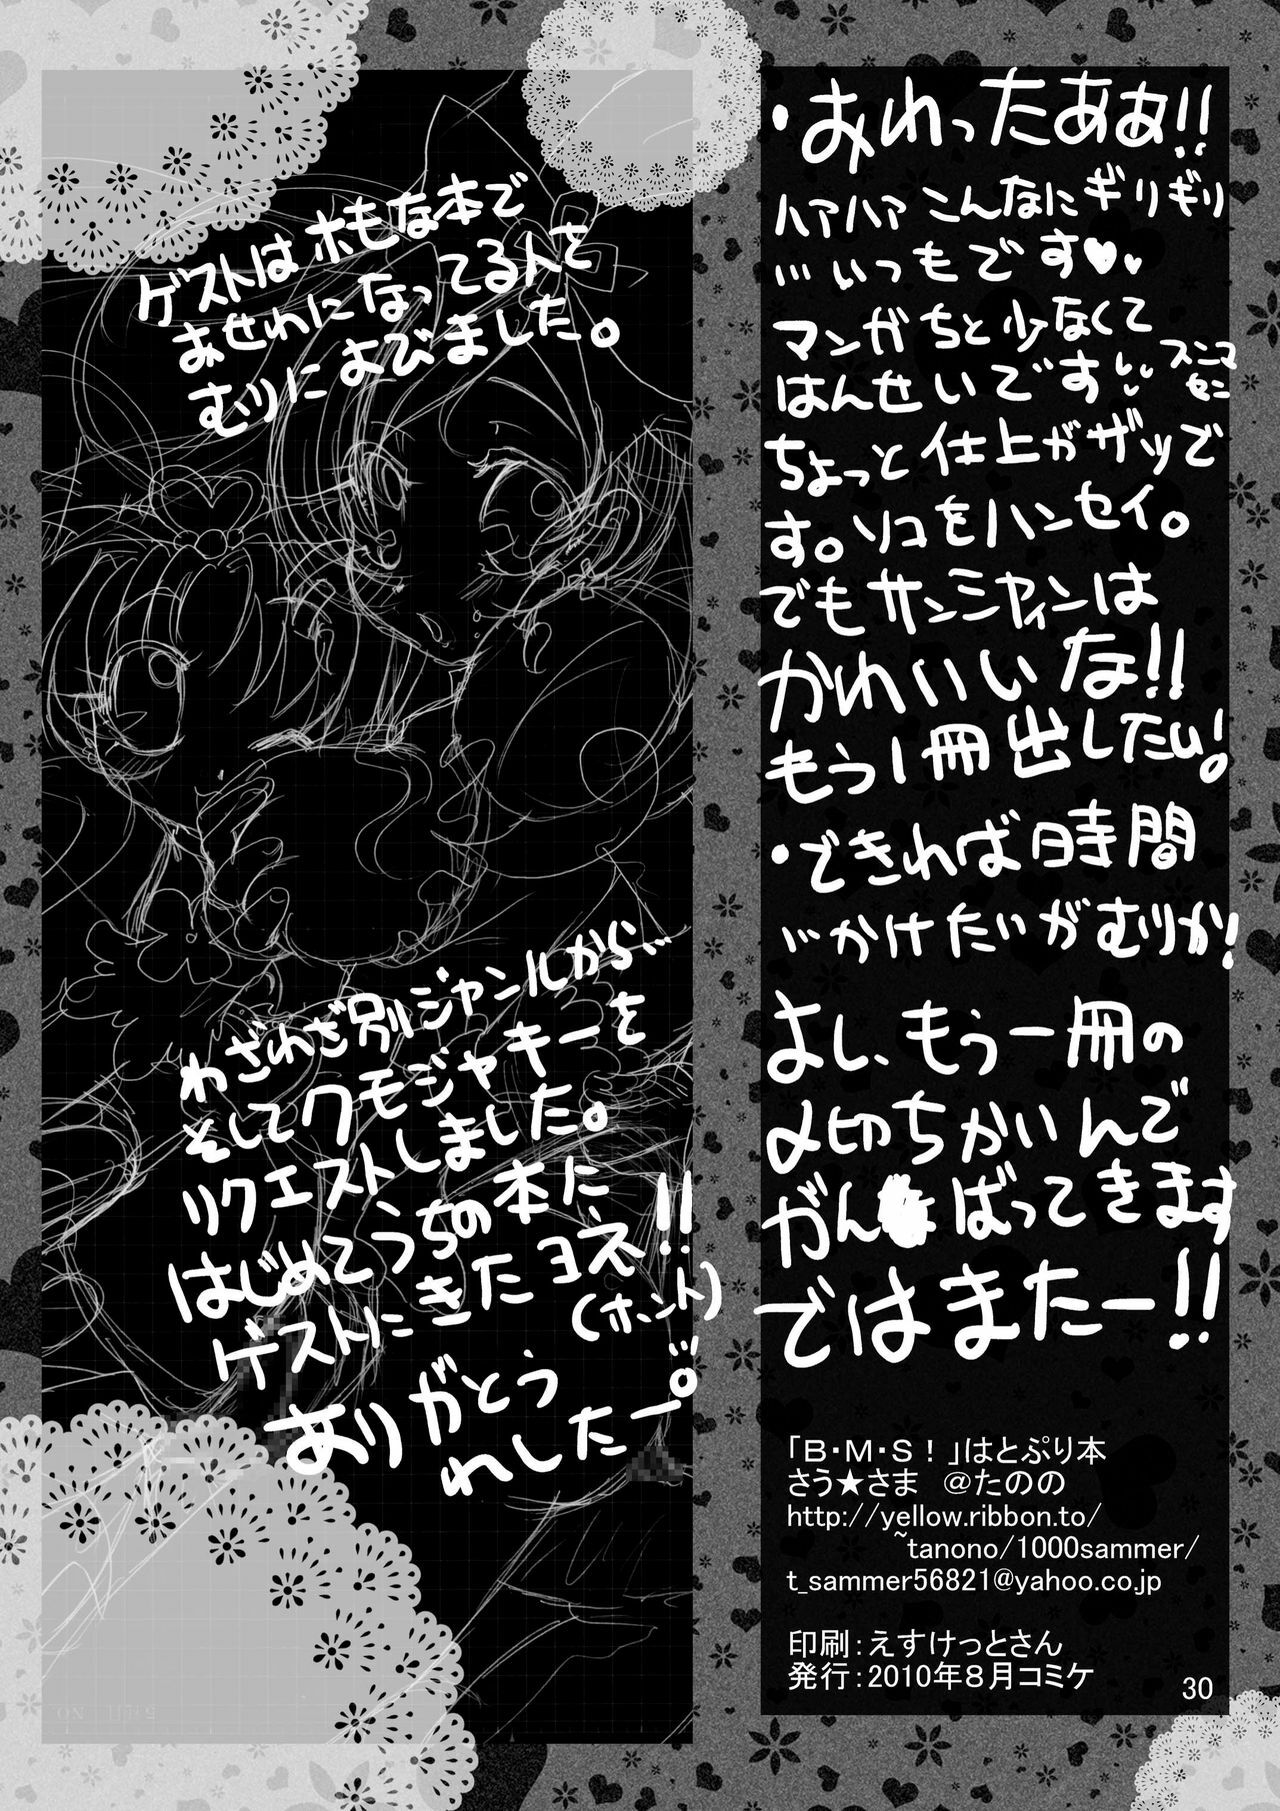 ・おわったあぁ!!
ハアハア こんなにギリギリ
…いつもです♥♥
マンガちと少なくて
はんせいです
ちょっと仕上がザッで
す。ソコをハンセイ。
でもサンシャインは
かわいいな!!
もう1冊出したい!
・できれば時間
…かけたいがむりか!
よし、もう一冊の
〆切ちかいんで
がんばってきます
ではまたー!!
「B・M・S!」はとぷり本
さう★さま @たのの
http://yellow.ribbon.to/
~tanono/1000sammer/
t_sammer56821@yahoo.co.jp
印刷:えすけっとさん
発行:2010年8月コミケ
30
ゲストはホモな本で
おせわになってる人を
むりによびました。
わざわざ別ジャンルから…
そしてクモジャキーを
リクエストしました。
はじめてうちの本に
ゲストにきたヨネ!!
(ホント)
ありがとう
れしたー。